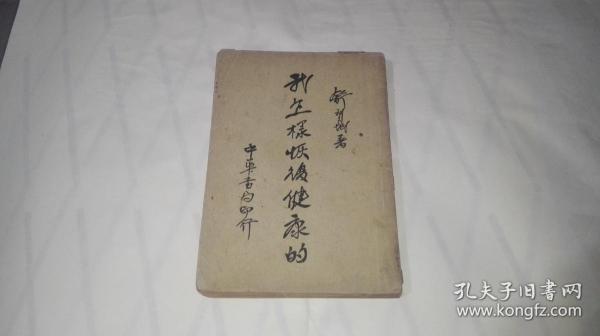 舒新城著
我怎樣恢復健康的
中華書局印行
孔夫子旧书网